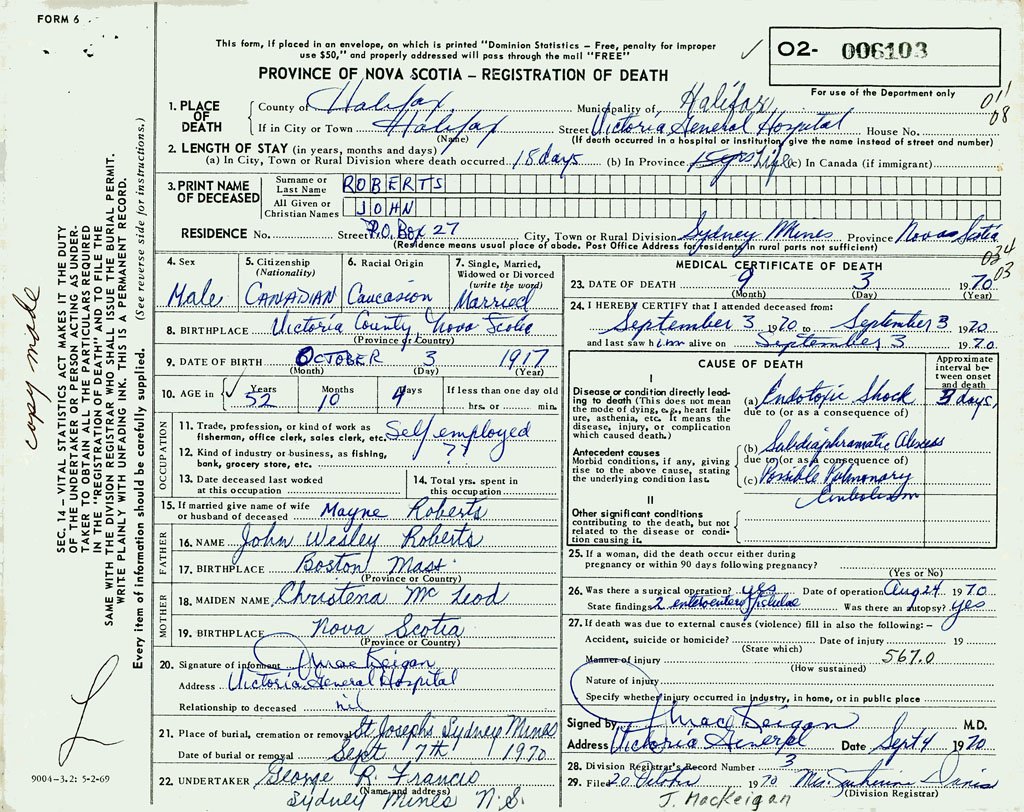 FORM 6
This form, if placed in an envelope, on which is printed "Dominion Statistics – Free, penalty for improper
use $50," and properly addressed will pass through the mail "FREE"
PROVINCE OF NOVA SCOTIA – REGISTRATION OF DEATH
02- 006103
For use of the Department only
011
08
1. PLACE OF DEATH County of Halifax Municipality of Halifax
If in City or Town Halifax Street Victoria General Hospital House No.
(Name) (If death occurred in a hospital or institution, give the name instead of street and number)
2. LENGTH OF STAY (in years, months and days)
(a) In City, Town or Rural Division where death occurred 18 days (b) In Province Life (c) In Canada (if immigrant)
3. PRINT NAME OF DECEASED Surname or Last Name ROBERTS
All Given or Christian Names JOHN
RESIDENCE No. Street P.O. Box 27 City, Town or Rural Division Sydney Mines Province Nova Scotia
(Residence means usual place of abode. Post Office Address for residents in rural parts not sufficient)
03
4. Sex Male
5. Citizenship (Nationality) CANADIAN
6. Racial Origin Caucasion
7. Single, Married, Widowed or Divorced (write the word) Married
8. BIRTHPLACE Victoria County, Nova Scotia
(Province or Country)
9. DATE OF BIRTH OCTOBER 3 1917
(Month) (Day) (Year)
10. AGE in Years 52 Months 10 Days 4 If less than one day old hrs. or min.
OCCUPATION
11. Trade, profession, or kind of work as fisherman, office clerk, sales clerk, etc. Self employed
12. Kind of industry or business, as fishing, bank, grocery store, etc. ? ?
13. Date deceased last worked at this occupation
14. Total yrs. spent in this occupation
15. If married give name of wife or husband of deceased Mayne Roberts
FATHER
16. NAME John Wesley Roberts
17. BIRTHPLACE Boston Mass
(Province or Country)
MOTHER
18. MAIDEN NAME Christena Mc Leod
19. BIRTHPLACE Nova Scotia
(Province or Country)
20. Signature of informant J MacKeigan
Address Victoria General Hospital
Relationship to deceased nil
21. Place of burial, cremation or removal St Josephs Sydney Mines
Date of burial or removal Sept 7th 1970
22. UNDERTAKER George R. Francis
(Name and address)
Sydney Mines N.S.
MEDICAL CERTIFICATE OF DEATH
23. DATE OF DEATH 9 3 1970
(Month) (Day) (Year)
24. I HEREBY CERTIFY that I attended deceased from:
September 3 1970 to September 3 1970
and last saw him alive on September 3 1970
CAUSE OF DEATH
Approximate interval between onset and death
I
Disease or condition directly leading to death (This does not mean the mode of dying, e.g., heart failure, asthenia, etc. It means the disease, injury, or complication which caused death.)
(a) Endotoxic Shock 3 days
due to (or as a consequence of)
Antecedent causes
Morbid conditions, if any, giving rise to the above cause, stating the underlying condition last.
(b) Subdiaphramatic Abscess
due to (or as a consequence of)
(c) Possible Pulmonary
Embolism
II
Other significant conditions contributing to the death, but not related to the disease or condition causing it.
25. If a woman, did the death occur either during pregnancy or within 90 days following pregnancy?
(Yes or No)
26. Was there a surgical operation? yes Date of operation Aug 24 1970
State findings 2 enteroenteric fistulae Was there an autopsy? yes
27. If death was due to external causes (violence) fill in also the following:–
Accident, suicide or homicide? Date of injury 19
(State which)
Manner of injury 567.0
(How sustained)
Nature of injury
Specify whether injury occurred in Industry, in home, or in public place
Signed by J MacKeigan M.D.
Address Victoria General Date Sept 4 1970
28. Division Registrar's Record Number 3
29. Filed 20 October 1970
(Division Registrar)
J. MacKeigan
copy made
SEC. 14 – VITAL STATISTICS ACT MAKES IT THE DUTY
OF THE UNDERTAKER OR PERSON ACTING AS UNDER-
TAKER TO OBTAIN ALL THE PARTICULARS REQUIRED
IN THE "REGISTRATION OF DEATH" AND TO FILE THE
SAME WITH THE DIVISION REGISTRAR WHO SHALL ISSUE THE BURIAL PERMIT.
WRITE PLAINLY WITH UNFADING INK. THIS IS A PERMANENT RECORD.
Every item of information should be carefully supplied. (See reverse side for instructions.)
9004-3.2: 5-2-69